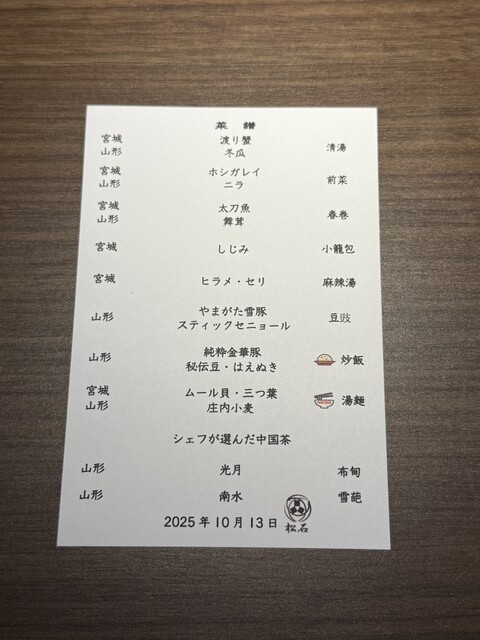 菜 譜
宮城 渡り蟹 清湯
山形 冬瓜
宮城 ホシガレイ 前菜
山形 ニラ
宮城 太刀魚 春巻
山形 舞茸
宮城 しじみ 小籠包
宮城 ヒラメ・セリ 麻辣湯
山形 やまがた雪豚 豆豉
スティックセニョール
山形 純粋金華豚 炒飯
秘伝豆・はえぬき
宮城 ムール貝・三つ葉 湯麺
山形 庄内小麦
シェフが選んだ中国茶
山形 光月 布甸
山形 南水 雪葩
2025年10月13日 松石